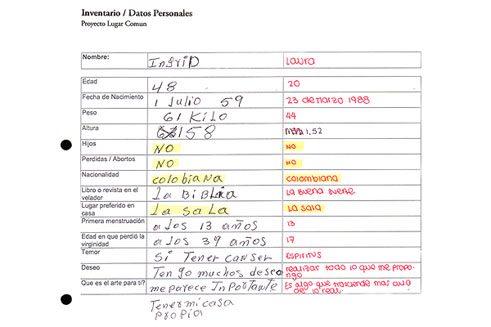 Inventario / Datos Personales
Proyecto Lugar Comun
Nombre: IngriD Laura
Edad 48 20
Fecha de Nacimiento 1 Julio 59 23 de marzo 1988
Peso 61 Kilo 44
Altura 158 1,52
Hijos NO NO
Perdidas / Abortos NO NO
Nacionalidad colobiana colombiana
Libro o revista en el La BiBLia La Buena suerte
velador
Lugar preferido en La SaLa La sala
casa
Primera menstruación a los 13 años 13
Edad en que perdió la a los 39 años 17
virginidad
Temor Si Tener canser Espiritus
Deseo Ten go muchos deseo realizar todo lo que me propo-
ngo
Que es el arte para ti? me parece InPortante Es algo que trasciende mas alla
de lo real.
Tener mi casa
Propia